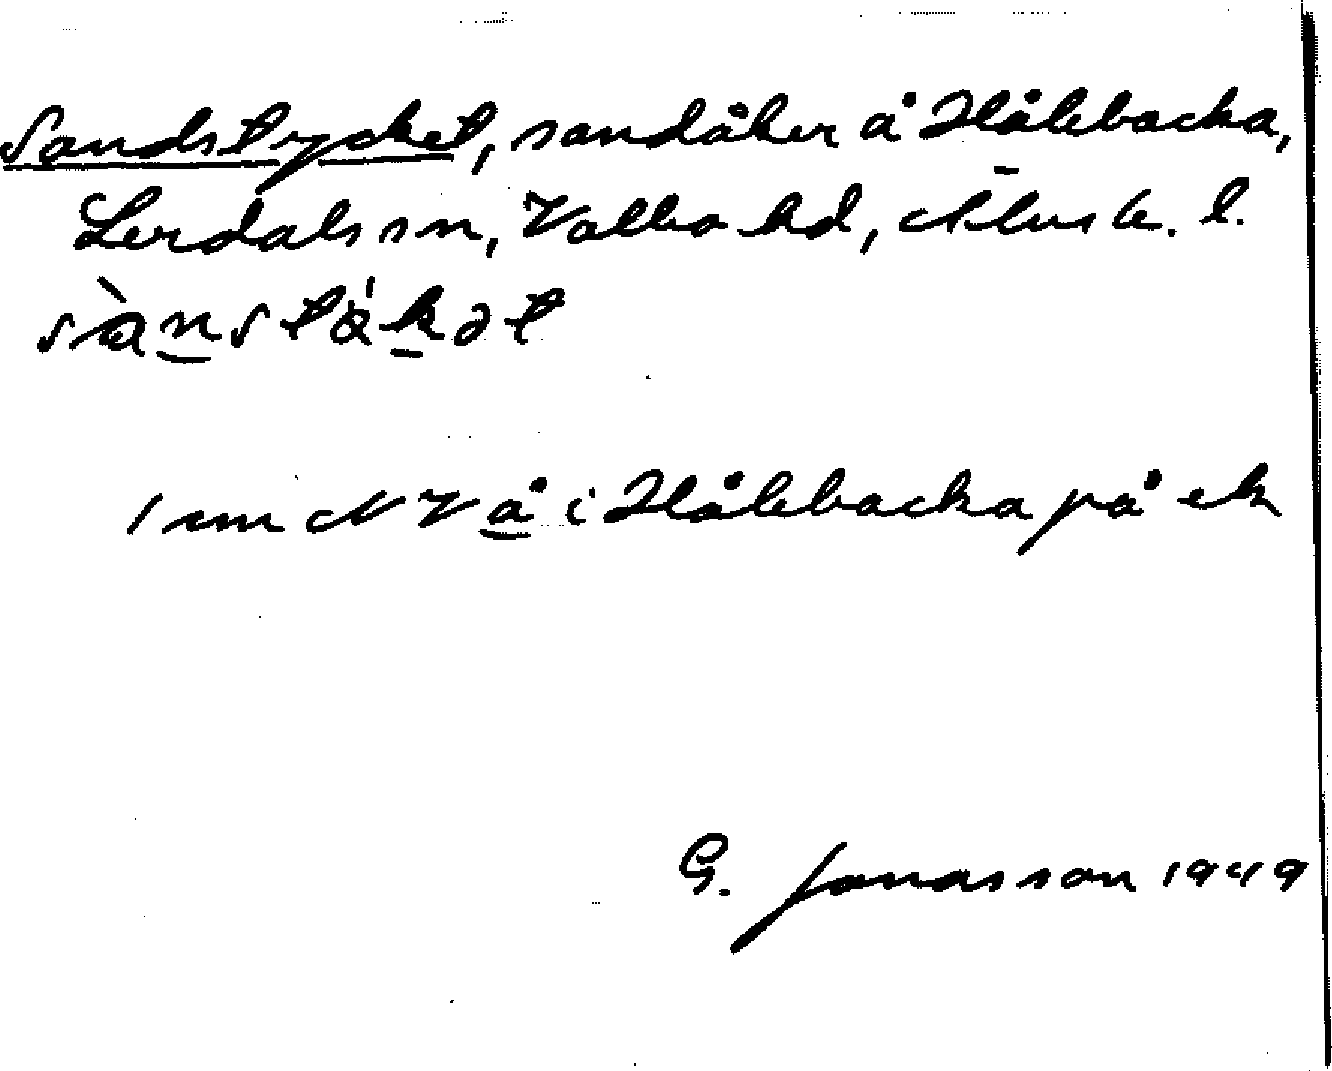 Sandstycket, sandåker å Hålebacka,
Lerdals sn, Valbo hd, Älvsb. l.
1 cm NV å i Hålebacka på ek
G. Jonasson 1949